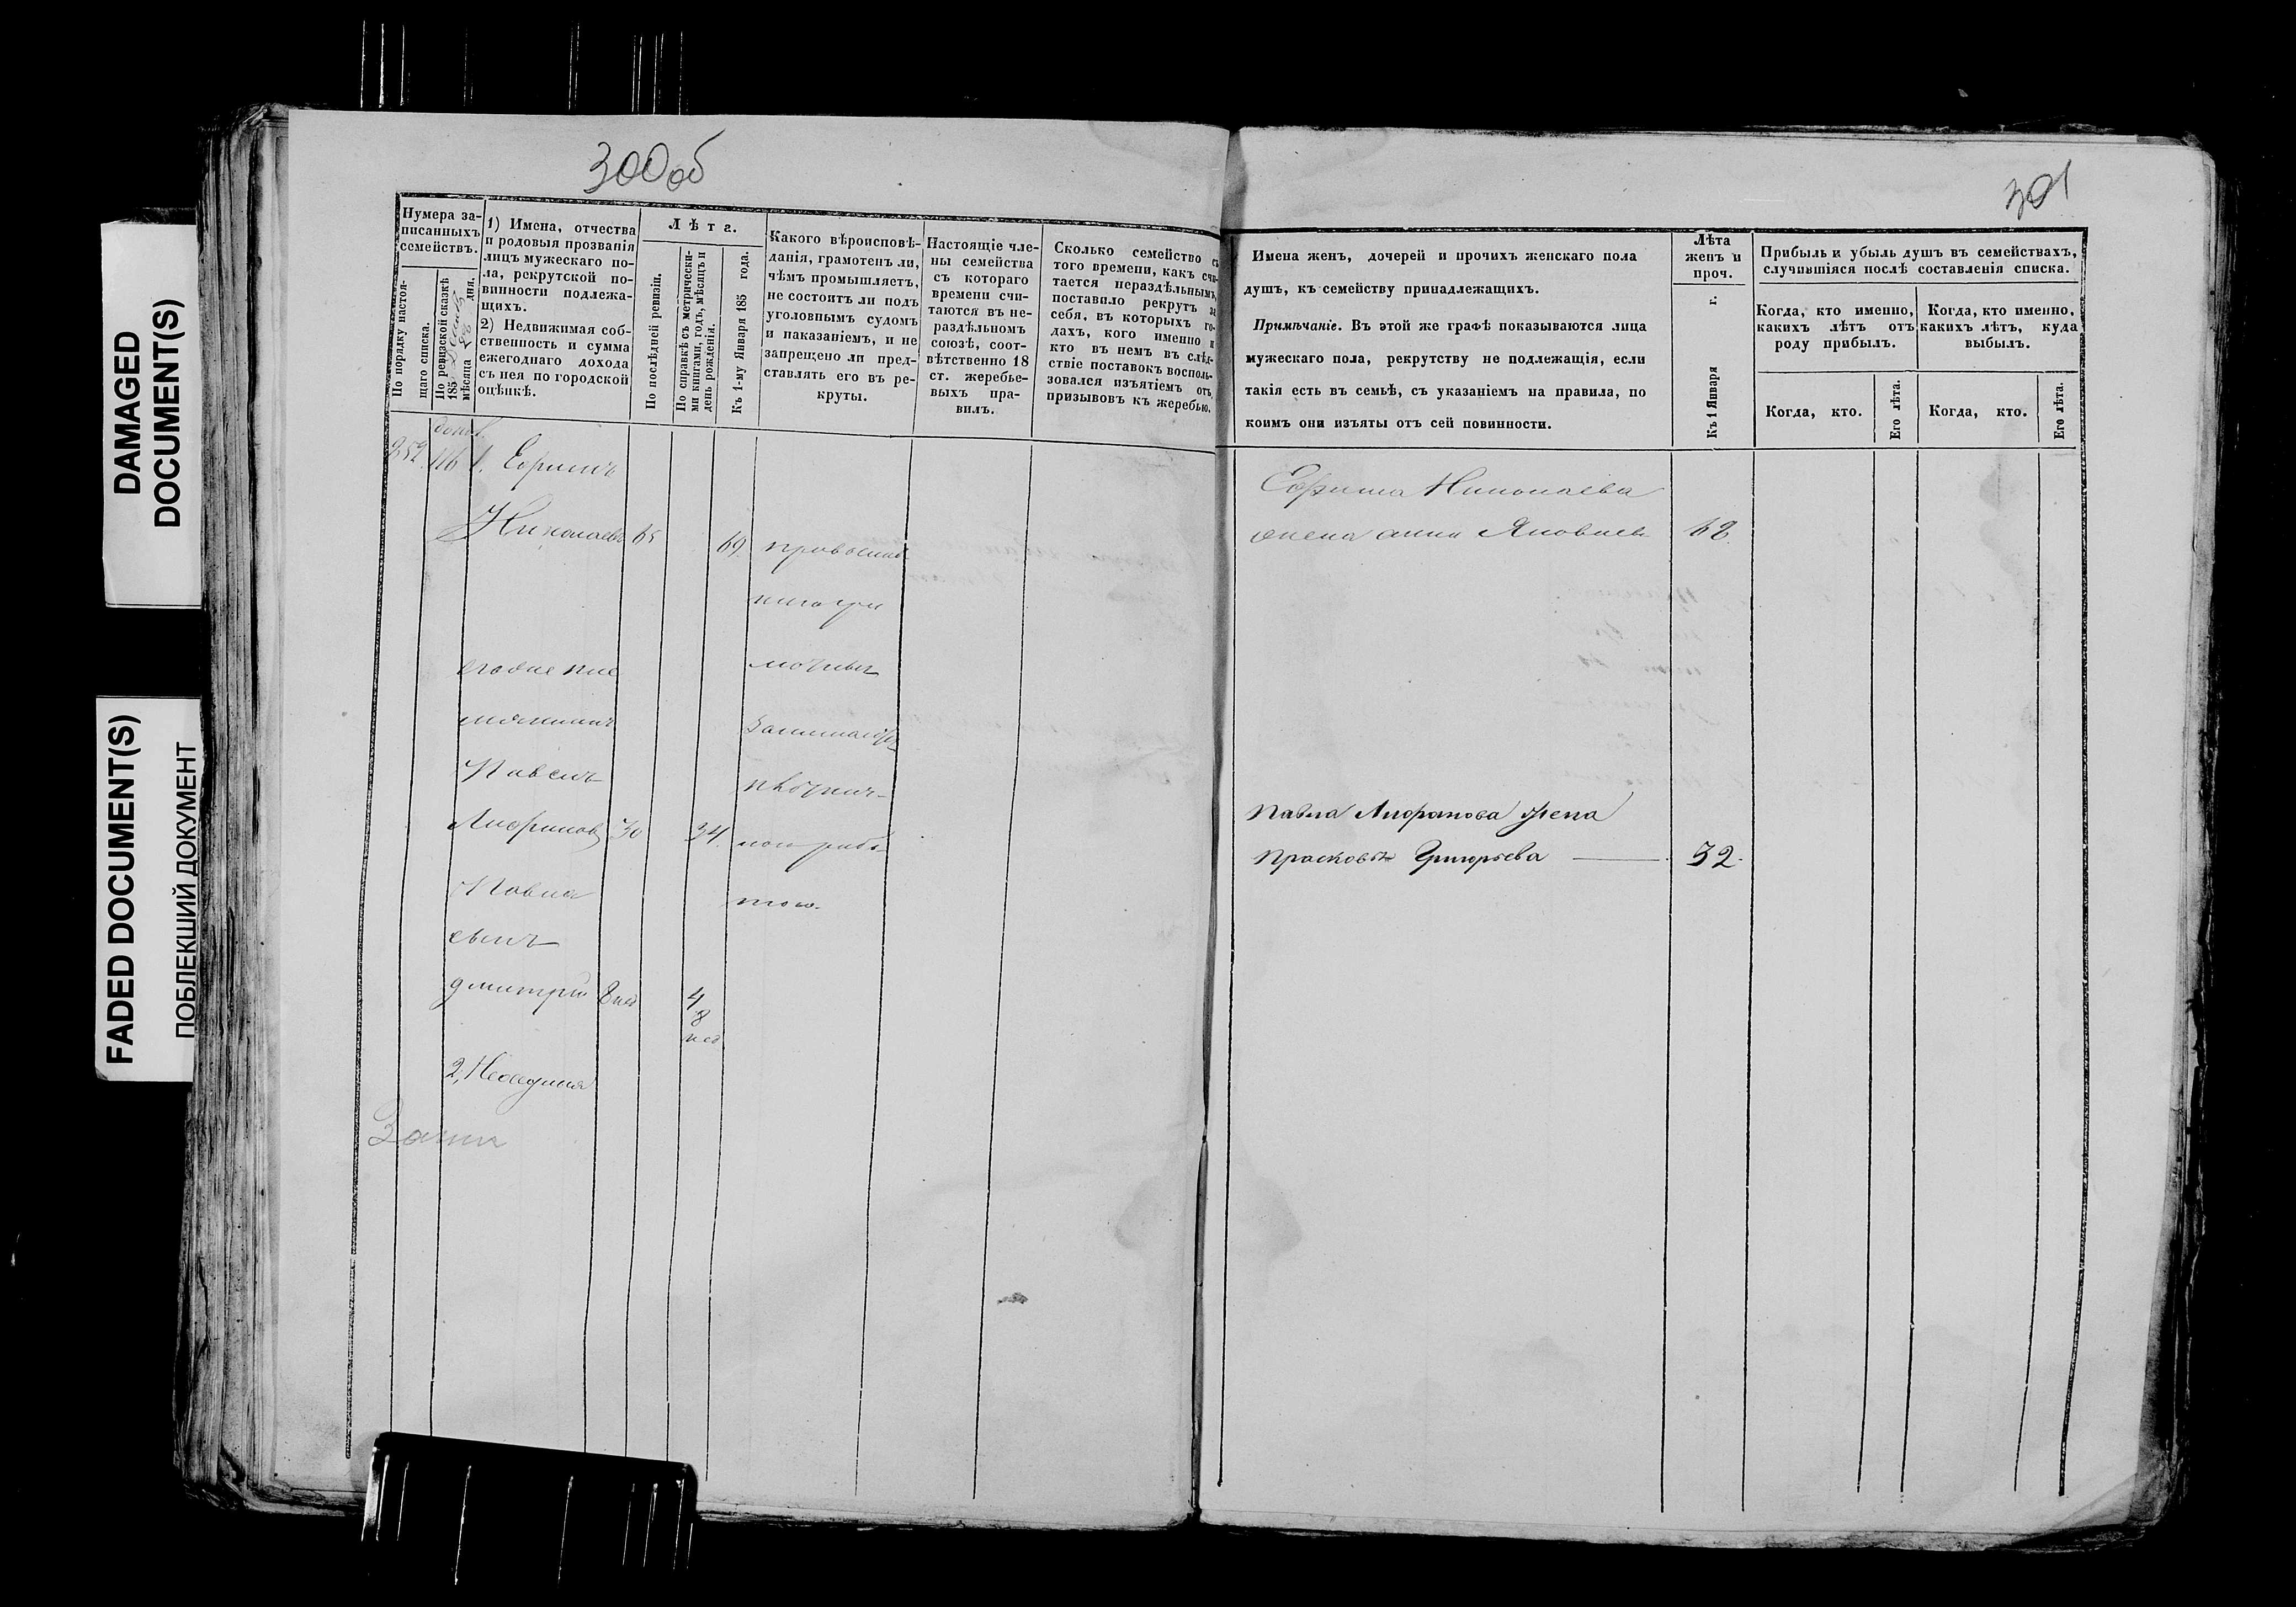 DAMAGED
DOCUMENT(S)
FADED DOCUMENT(S)
ПОБЛЕКШИЙ ДОКУМЕНТ
300об
Нумера за-
писанныхъ
семействъ.
По порядку настоя-
щаго списка.
По ревизской сказкѣ
185
мѣсяца 28 дня.
1) Имена, отчества
и родовыя прозванія
лицъ мужескаго по-
ла, рекрутской по-
винности подлежа-
щихъ.
2) Недвижимая соб-
ственность и сумма
ежегоднаго дохода
съ нея по городской
оцѣнкѣ.
Лѣта.
По послѣдней ревизіи.
По справкѣ съ метрически-
ми книгами, годъ, мѣсяцъ и
день рожденія.
Къ 1-му Января 185 года.
Какого вѣроисповѣ-
данія, грамотенъ ли,
чѣмъ промышляетъ,
не состоитъ ли подъ
уголовнымъ судомъ
и наказаніемъ, и не
запрещено ли пред-
ставлять его въ ре-
круты.
Настоящіе чле-
ны семейства
съ котораго
времени счи-
таются въ не-
раздѣльномъ
союзѣ, соот-
вѣтственно 18
ст. жеребье-
выхъ пра-
вилъ.
Сколько семейство съ
того времени, какъ счи-
тается нераздѣльнымъ,
поставило рекрутъ за
себя, въ которыхъ го-
дахъ, кого именно и
кто въ немъ въ слѣд-
ствіе поставокъ восполь-
зовался изъятіемъ отъ
призывовъ къ жеребью.
252. 116 1. Ефимъ
Николаевъ 65 69. православ
неграм
мотенъ
племянникъ
занимается
Павелъ
Павла 30 34. рабо
тою.
сынъ
Дмитрій 8 нед 4
8
нед
2, Неимѣ
301
Имена женъ, дочерей и прочихъ женскаго пола
душъ, къ семейству принадлежащихъ.
Примѣчаніе. Въ этой же графѣ показываются лица
мужескаго пола, рекрутству не подлежащія, если
такія есть въ семьѣ, съ указаніемъ на правила, по
коимъ они изъяты отъ сей повинности.
Лѣта
женъ и
проч.
Къ 1 Января г.
Прибыль и убыль душъ въ семействахъ,
случившіяся послѣ составленія списка.
Когда, кто именно,
какихъ лѣтъ отъ
роду прибылъ.
Когда, кто именно,
какихъ лѣтъ, куда
выбылъ.
Когда, кто.
Его лѣта.
Когда, кто.
Его лѣта.
Ефима Николаева
жена анна Яковлев 68.
Павла жена
Прасковья Григорьева 32.